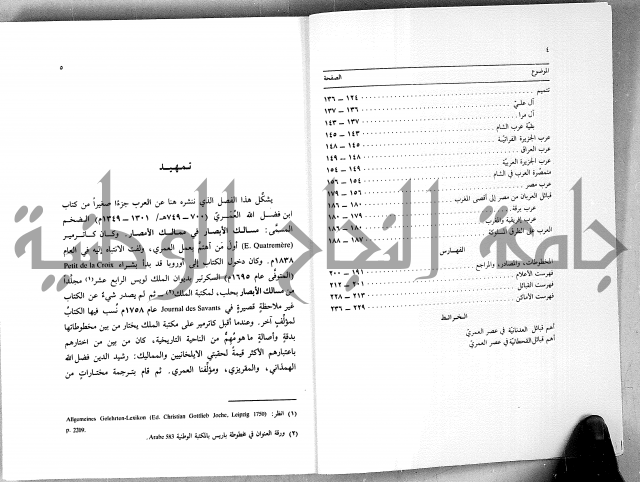 ٤
الموضوع الصفحة
تتميم ١٢٤ – ١٣٦
آل علي ١٣٦ – ١٣٧
آل مرا ١٣٧ – ١٤٣
بقيّة عرب الشام ١٤٣ – ١٤٥
عرب الجزيرة الفراتيّة ١٤٥ – ١٤٨
عرب العراق ١٤٨ – ١٤٩
عرب الجزيرة العربيّة ١٤٩ – ١٥٤
متنصّرة العرب في الشام ١٥٤ – ١٥٦
عرب مصر ١٥٦ – ١٧٩
قبائل العربان من مصر إلى أقصى المغرب ١٧٩ – ١٨٦
عرب برقة ١٨٠ –
عرب إفريقية والمغرب
العرب على الطرق ١٨٧ – ١٨٨
الفهارس
المخطوطات، والمصادر، والمراجع ١٩١ – ٢٠٠
فهرست الأعلام ٢٠١ – ٢١٢
فهرست القبائل ٢١٣ – ٢٢٨
فهرست الأماكن ٢٢٩ – ٢٣٦
الخرائط
أهم قبائل العدنانيّة في عصر العمريّ
أهم قبائل القحطانيّة في عصر العمريّ
٥
تمهيد
يشكّل هذا الفصل الذي ننشره هنا عن العرب جزءًا صغيراً من كتاب
ابن فضل الله العُمَريّ (٧٠٠ – ٧٤٩هـ/ ١٣٠١ – ١٣٤٩م) الضخم
المسمّى: مسالك الأبصار في ممالك الأمصار. وكان كاترمير
(E. Quatremère) أول من اهتم بعمل العمري، ولفت الانتباه إليه في العام
١٨٣٨م. وكان دخول الكتاب إلى أوروبا قد بدأ بشراء Petit de la Croix
(المتوفّى عام ١٦٩٥م) السكرتير بديوان الملك لويس الرابع عشر(١) مجلّداً
من مسالك الأبصار بحلب، لمكتبة الملك(٢) – ثم لم يصدر شيءٌ عن الكتاب
غير ملاحظةٍ قصيرةٍ في Journal des Savants عام ١٧٥٨م نُسب فيها الكتابُ
لمؤلّفٍ آخر. وعندما أقبل كاترمير على مكتبة الملك يختار من بين مخطوطاتها
بدقةٍ وأصالةٍ ما هو مُهِمٌّ من الناحية التاريخية، كان من بين من اختارهم
باعتبارهم الأكثر قيمةً لحقبتي الايلخانيين والمماليك: رشيد الدين فضل الله
الهمذاني، والمقريزي، ومؤلّفنا العمري. ثم قام بترجمة مختاراتٍ من
(١) انظر: Allgemeines Gelehrten-Lexikon (Ed. Christian Gottlieb Joche, Leipzig 1750)
p. 2209.
(٢) ورقة العنوان في مخطوطة باريس بالمكتبة الوطنية Arabe 583.
جامعة النجاح الوطنية